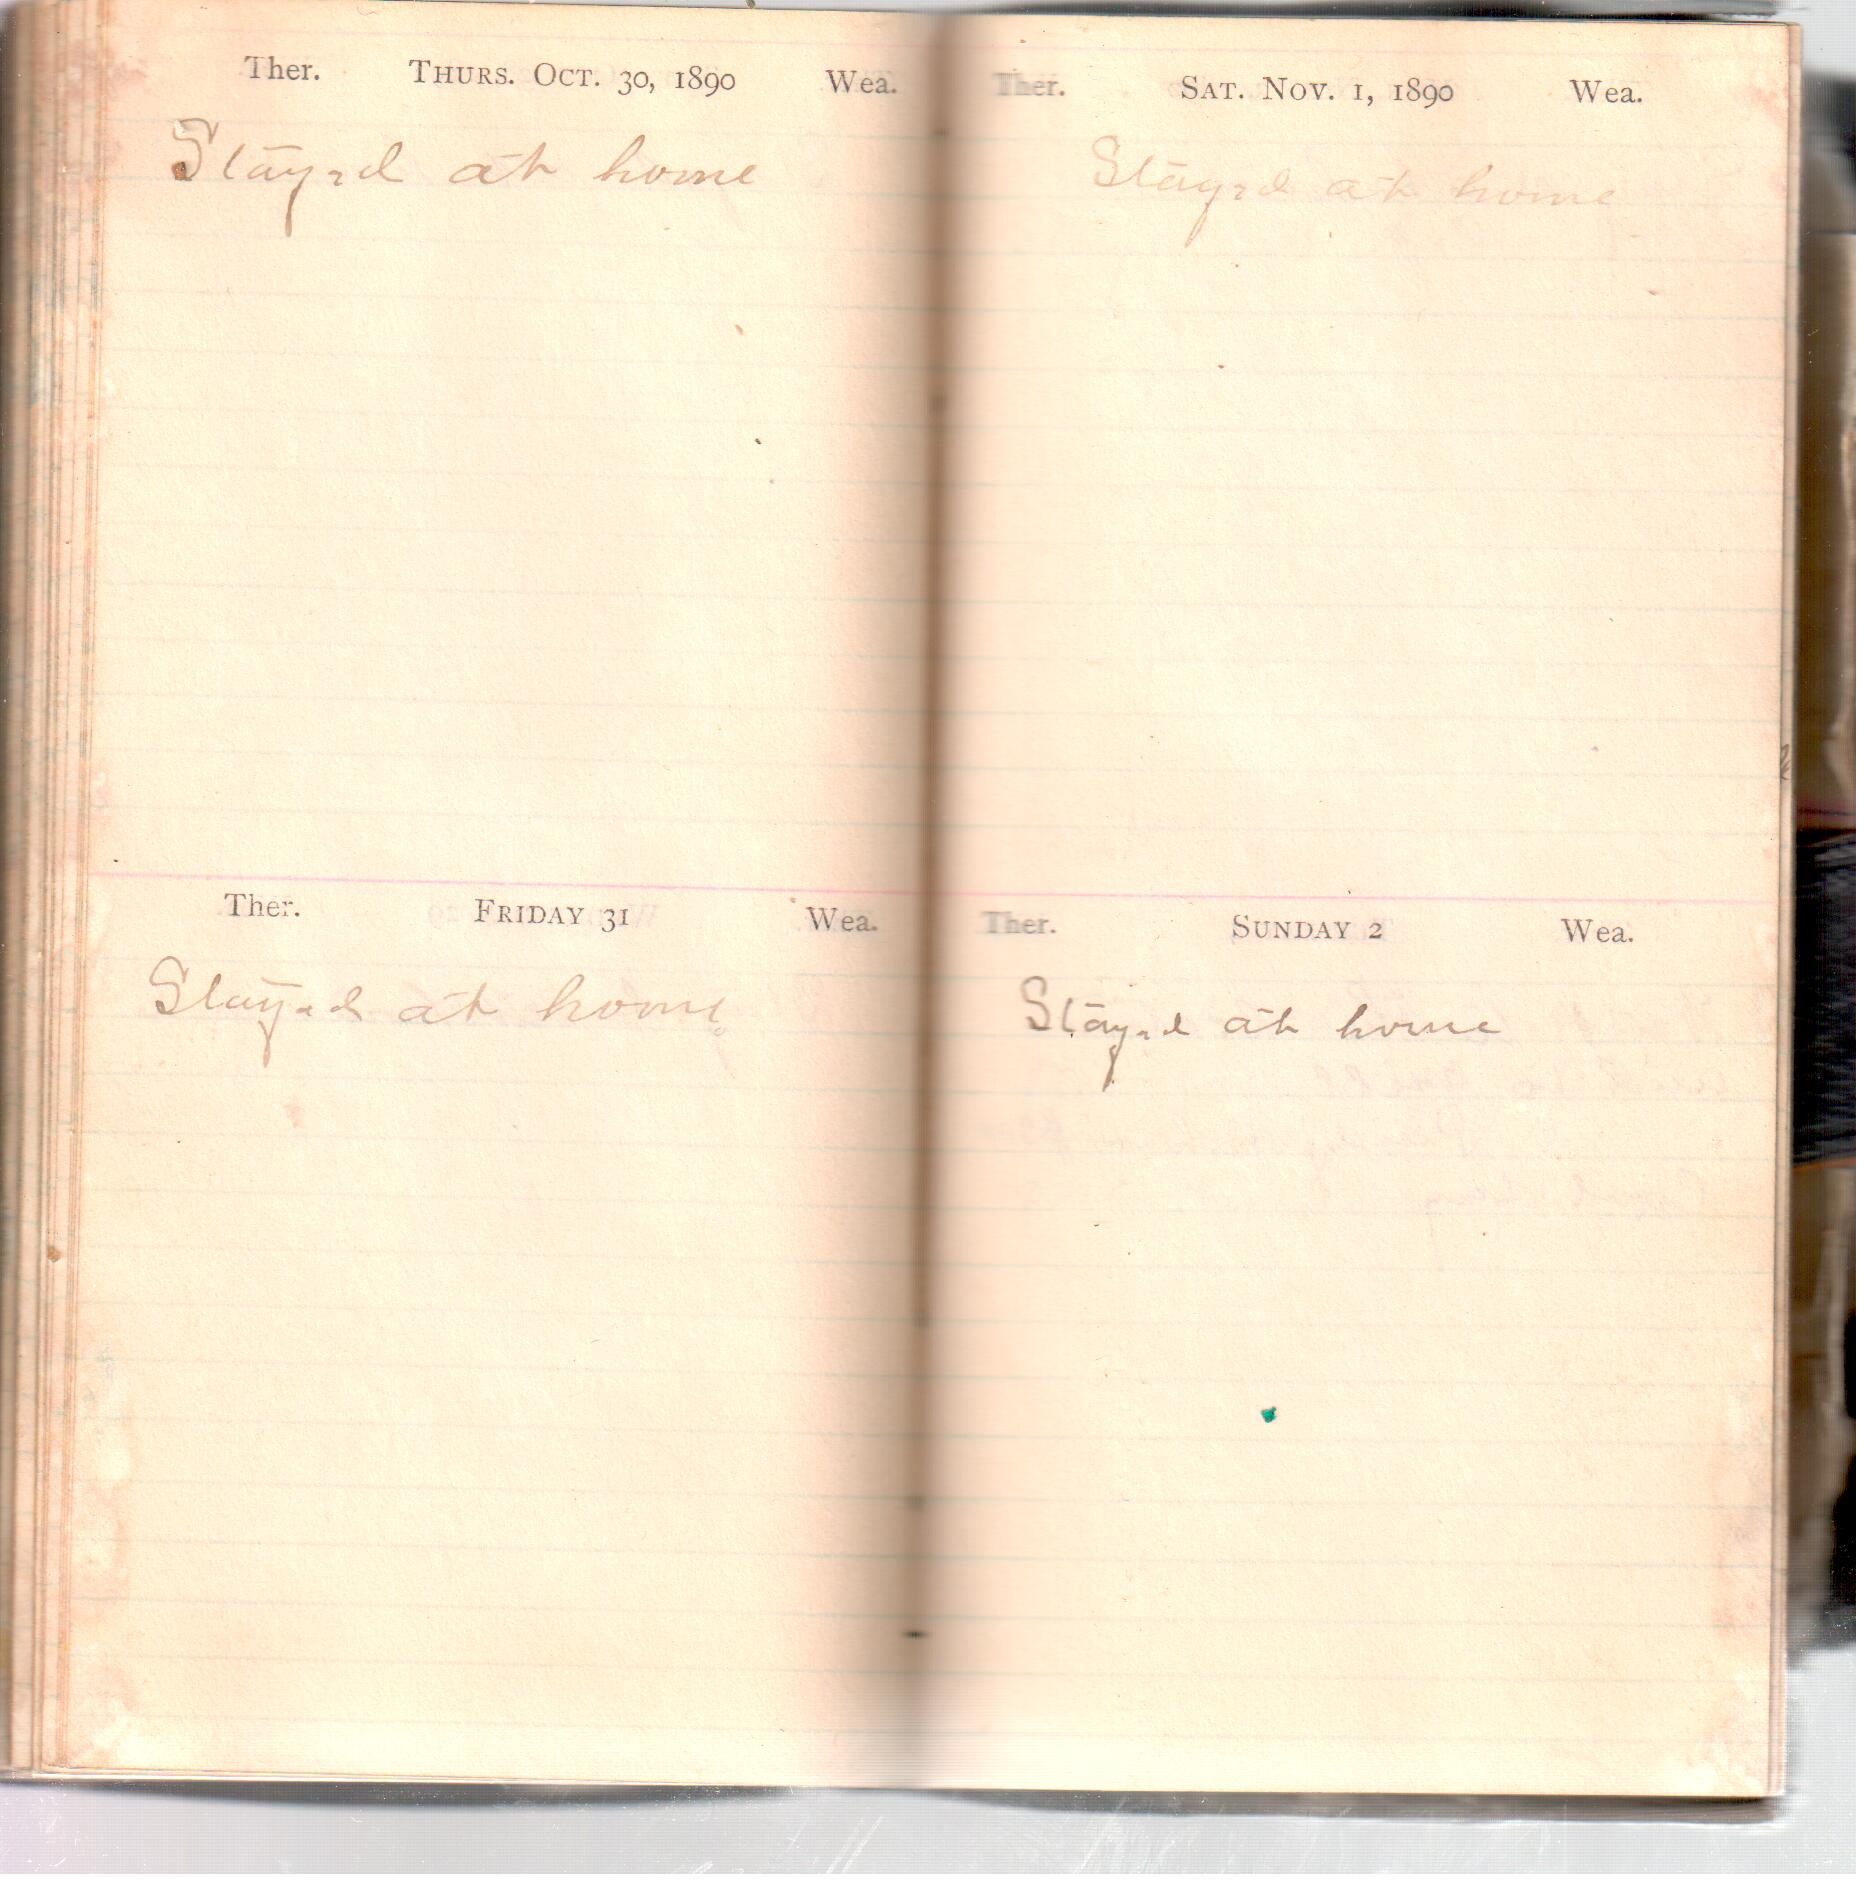 Ther. THURS. OCT. 30, 1890 Wea.
Stayed at home
Ther. FRIDAY 31 Wea.
Stayed at home
Ther. SAT. NOV. 1, 1890 Wea.
Stayed at home
Ther. SUNDAY 2 Wea.
Stayed at home